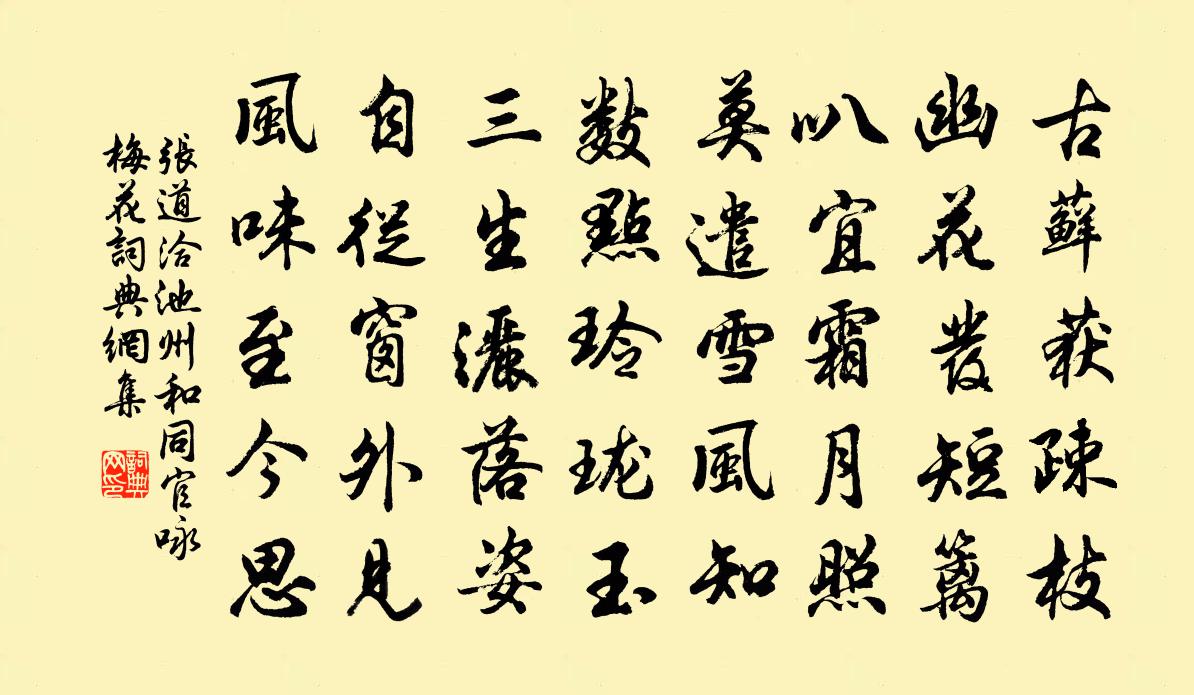 古蘚获疎枝
幽花發短籬
叭宜霜月照
莫遣雪風知
數點玲瓏玉
三生灑落姿
自從窗外見
風味至今思
張道洽池州和同官咏
梅花詞典網集
詞典
网印